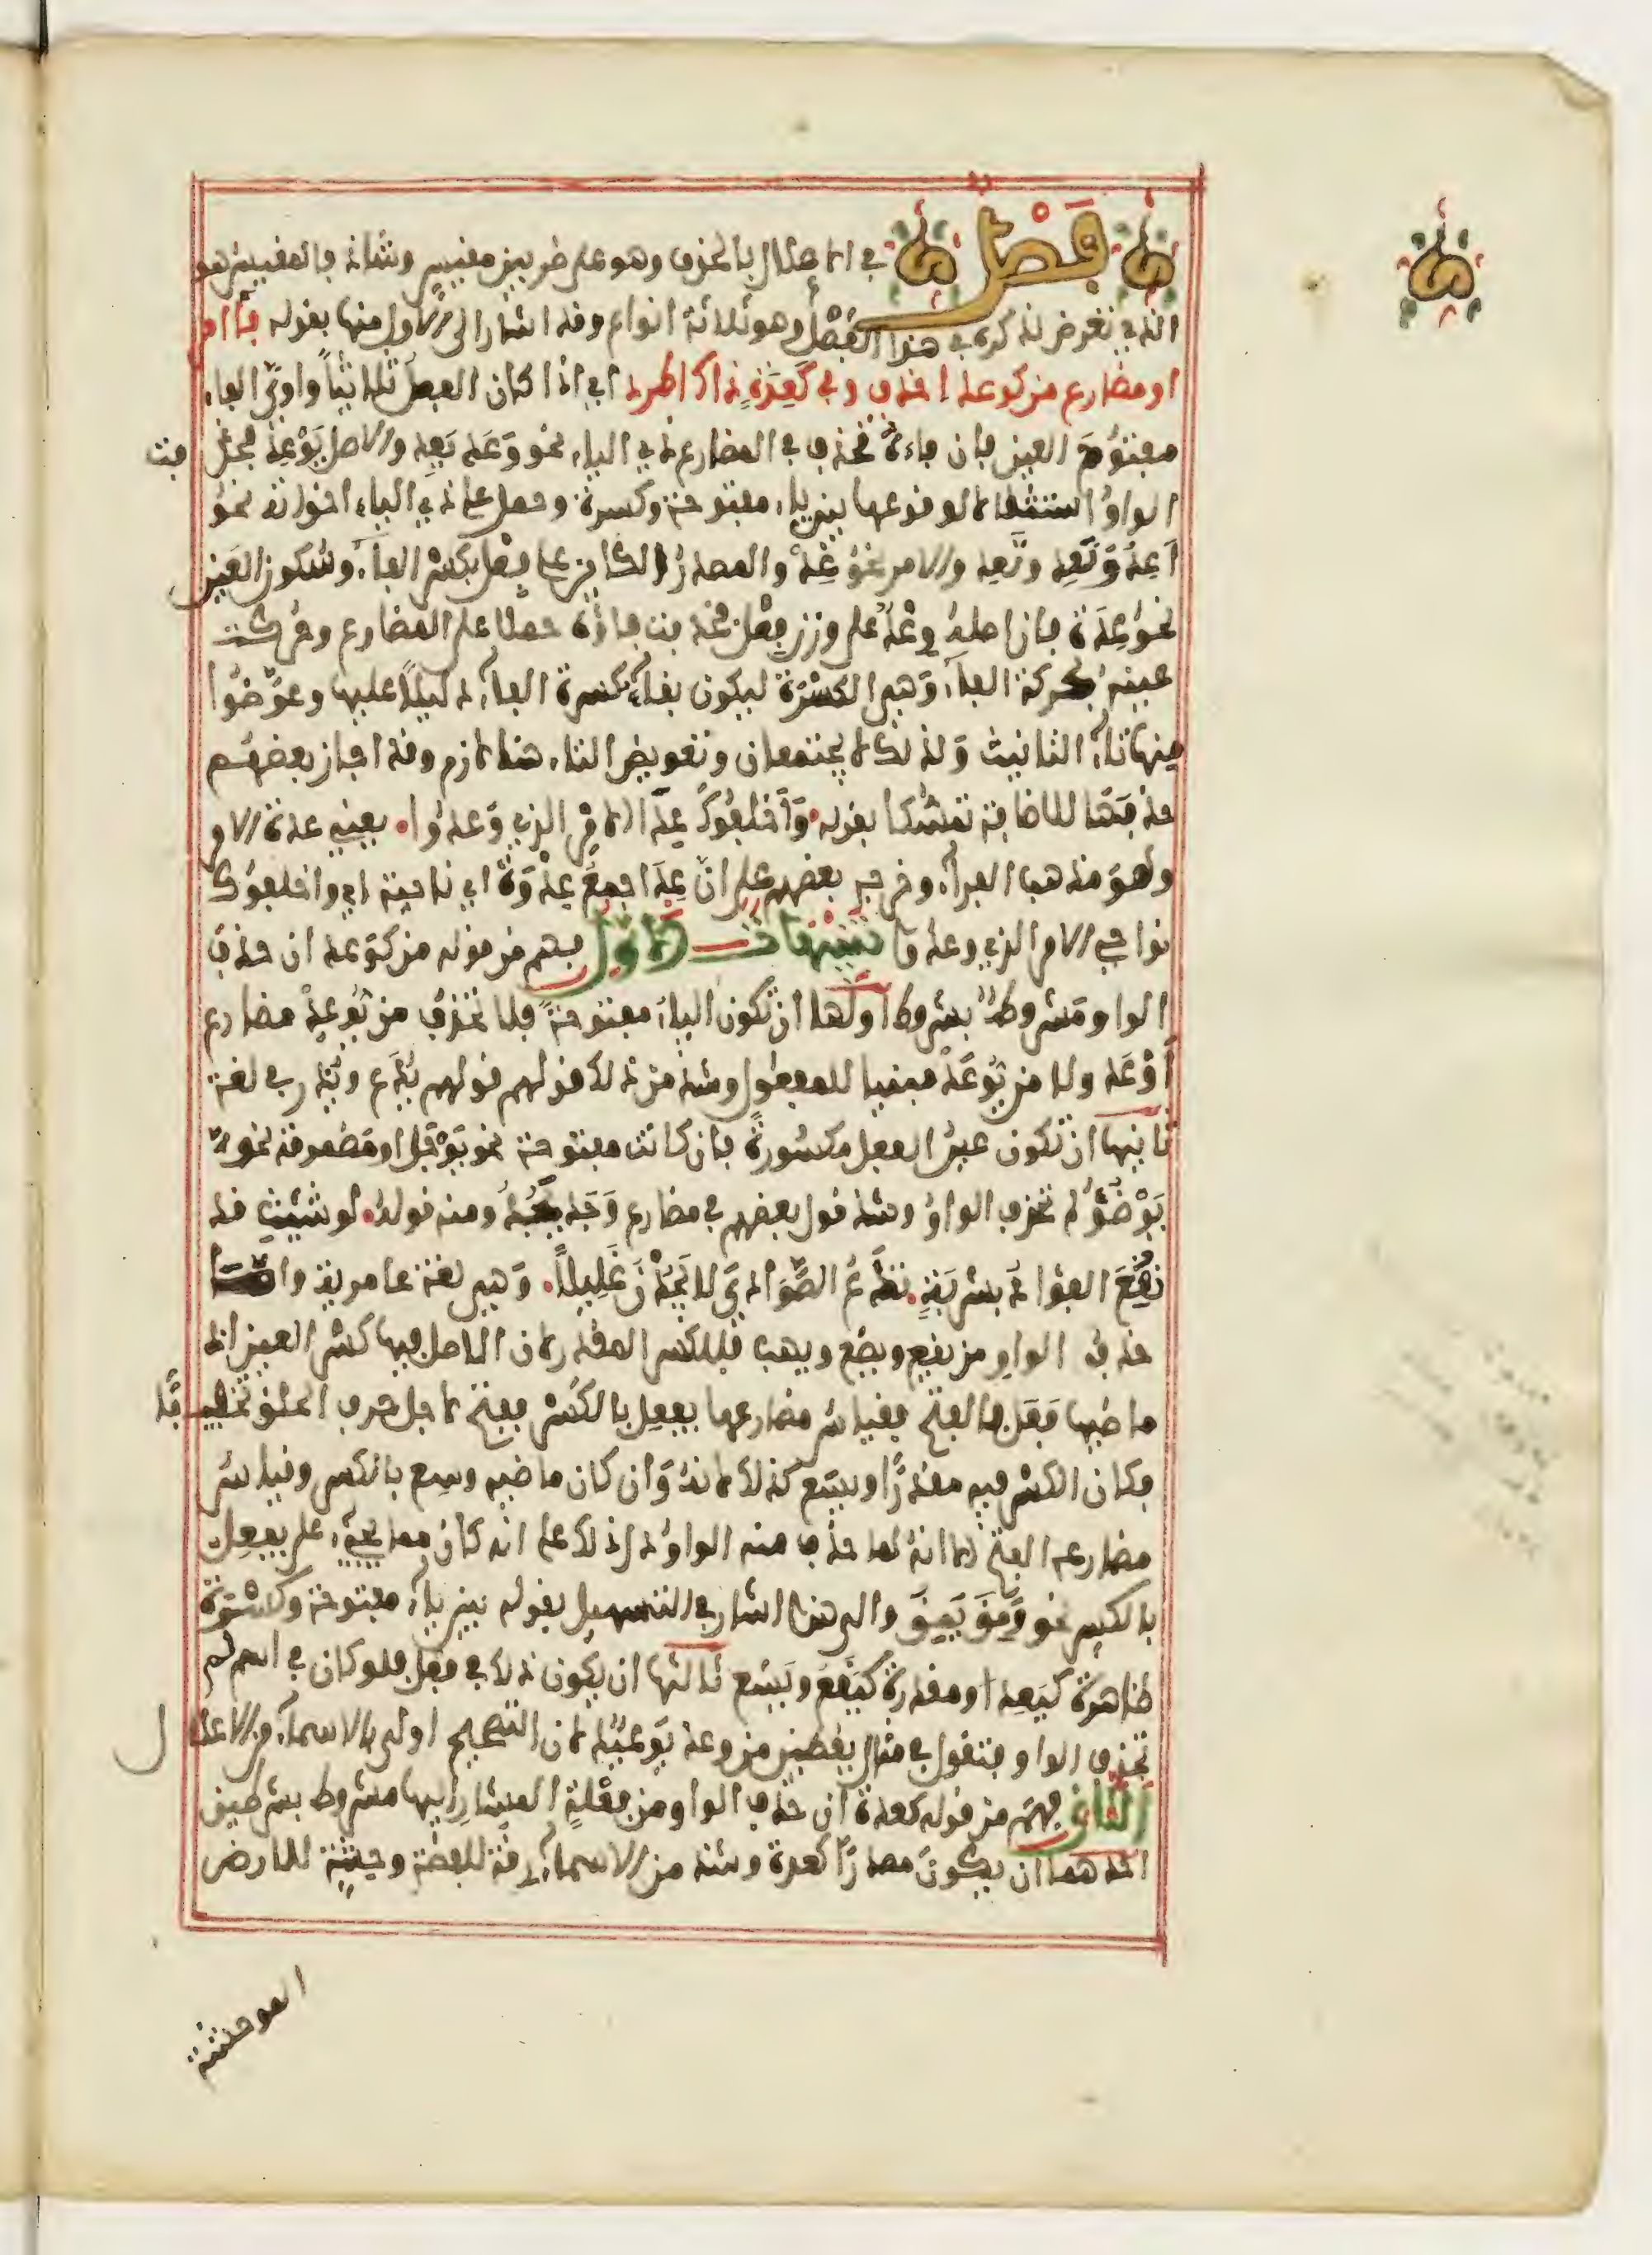 فصل في الاعلال بالحذف وهو على ضربين مقيس وشاذ فالمقيس هو
الذي تعرض لذكره في هذا الفصل وهو ثلاثة انواع وقد اشار الى الاول منها بقوله فا امر
او مضارع من كوعد احذف وفي كعدة ذاك اطرد اي اذا كان الفعل ثلاثيا واوي الفاء
مفتوح العين فان فاءه تحذف في المضارع ذي الياء نحو وعد يعد والاصل يوعد فحذفت
الواو استثقالا لوقوعها بين ياء مفتوحة وكسرة وحمل على ذي الياء اخواته نحو
اعد ونعد وتعد والامر نحو عد والمصدر الكائن على فعل بكسر الفاء وسكون العين
نحو عدة فان اصله وعد على وزن فعل فحذفت فاؤه حملا على المضارع وحركت
عينه بحركة الفاء وهي الكسرة ليكون بقاء كسرة الفاء دليلا عليها وعوضوا
منها تاء التانيث ولذلك لا يجتمعان وتعويض التاء هنا لازم وقد اجاز بعضهم
حذفها للاضافة تمسكا بقوله واخلفوك عد الامر الذي وعدوا يعني عدة الامر
وهو مذهب الفراء وخرجه بعضهم على ان عد اجمع عدوة اي ناحية اي واخلفوك
نواحي الامر الذي وعدوا تنبيهات الاول فهم من قوله من كوعد ان حذف
الواو مشروط بشروط اولها ان تكون الياء مفتوحة فلا تحذف من يوعد مضارع
اوعد ولا من يوعد مبنيا للمفعول وشذ من ذلك قولهم قولهم يدع ويذر في لغة
ثانيها ان تكون عين الفعل مكسورة فان كانت مفتوحة نحو يوجل او مضمومة نحو
يوضؤ لم تحذف الواو وشذ قول بعضهم في مضارع وجد يجد ومنه قوله لو شئت قد
نقع الفؤاد بشربة تدع الصوادي لا يجدن غليلا وهي لغة عامرية واما
حذف الواو من يقع ويضع ويهب فللكسر المقدر لان الاصل فيها كسر العين اذ
ماضيها فعل بالفتح فقياس مضارعها يفعل بالكسر ففتح لاجل حرف الحلق تخفيفا
فكان الكسر فيه مقدرا ويسع كذلك لانه وان كان ماضيه وسع بالكسر وقياس
مضارعه الفتح الا انه لما حذف منه الواو دل ذلك على انه كان مما يجيء على يفعل
بالكسر نحو ومق يمق والى هذا اشار في التسهيل بقوله بين ياء مفتوحة وكسرة
ظاهرة كيعد او مقدرة كيقع ويسع ثالثها ان يكون ذلك في فعل فلو كان في اسم لم
تحذف الواو فتقول في مثال يقطين من وعد يوعيد لان التصحيح اولى بالاسماء من الاعلال
الثاني فهم من قوله كعدة ان حذف الواو من فعلة المشار اليها مشروط بشرطين
احدهما ان يكون مصدرا كعدة وشذ من الاسماء رقة للفضة وحشة للارض
الموحشة